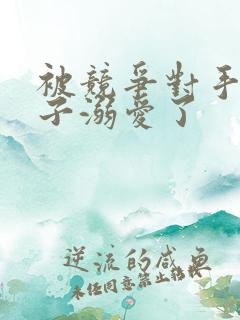 被競爭對手
子溺愛了
逆流的咸魚
未经同意禁止转载